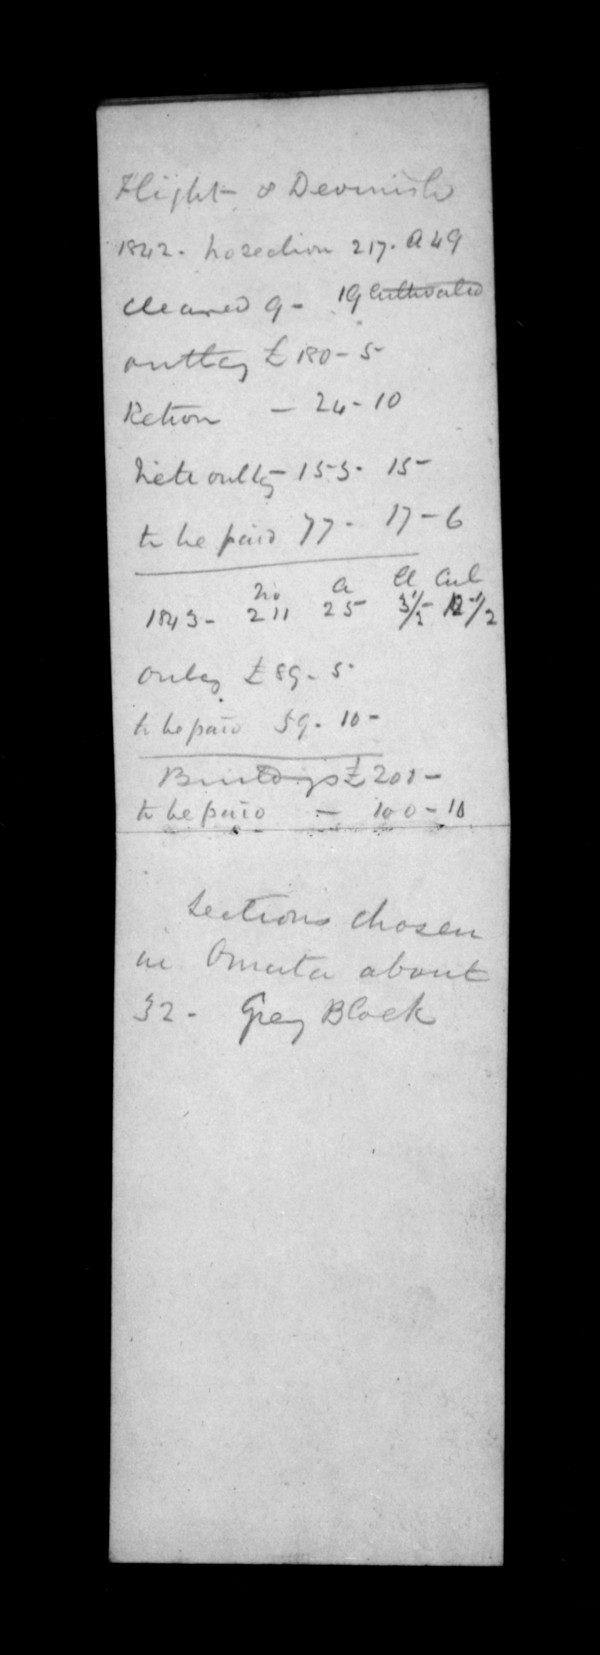 Flight & Devenish
1842. No section 217. A 49
Cleared 9 - 19 cultivated
outlay £180 - 5
Return - 24 - 10
Nett outlay 155 - 15 -
to be paid 77 - 17 - 6
No a Cl Cul
1843 - 211 25 3 1/2 12 1/2
outlay £89 - 5
to be paid 59 - 10 -
Buildings £201 -
to be paid - 100 - 10
Sections chosen
in Omata about
32 - Grey Block